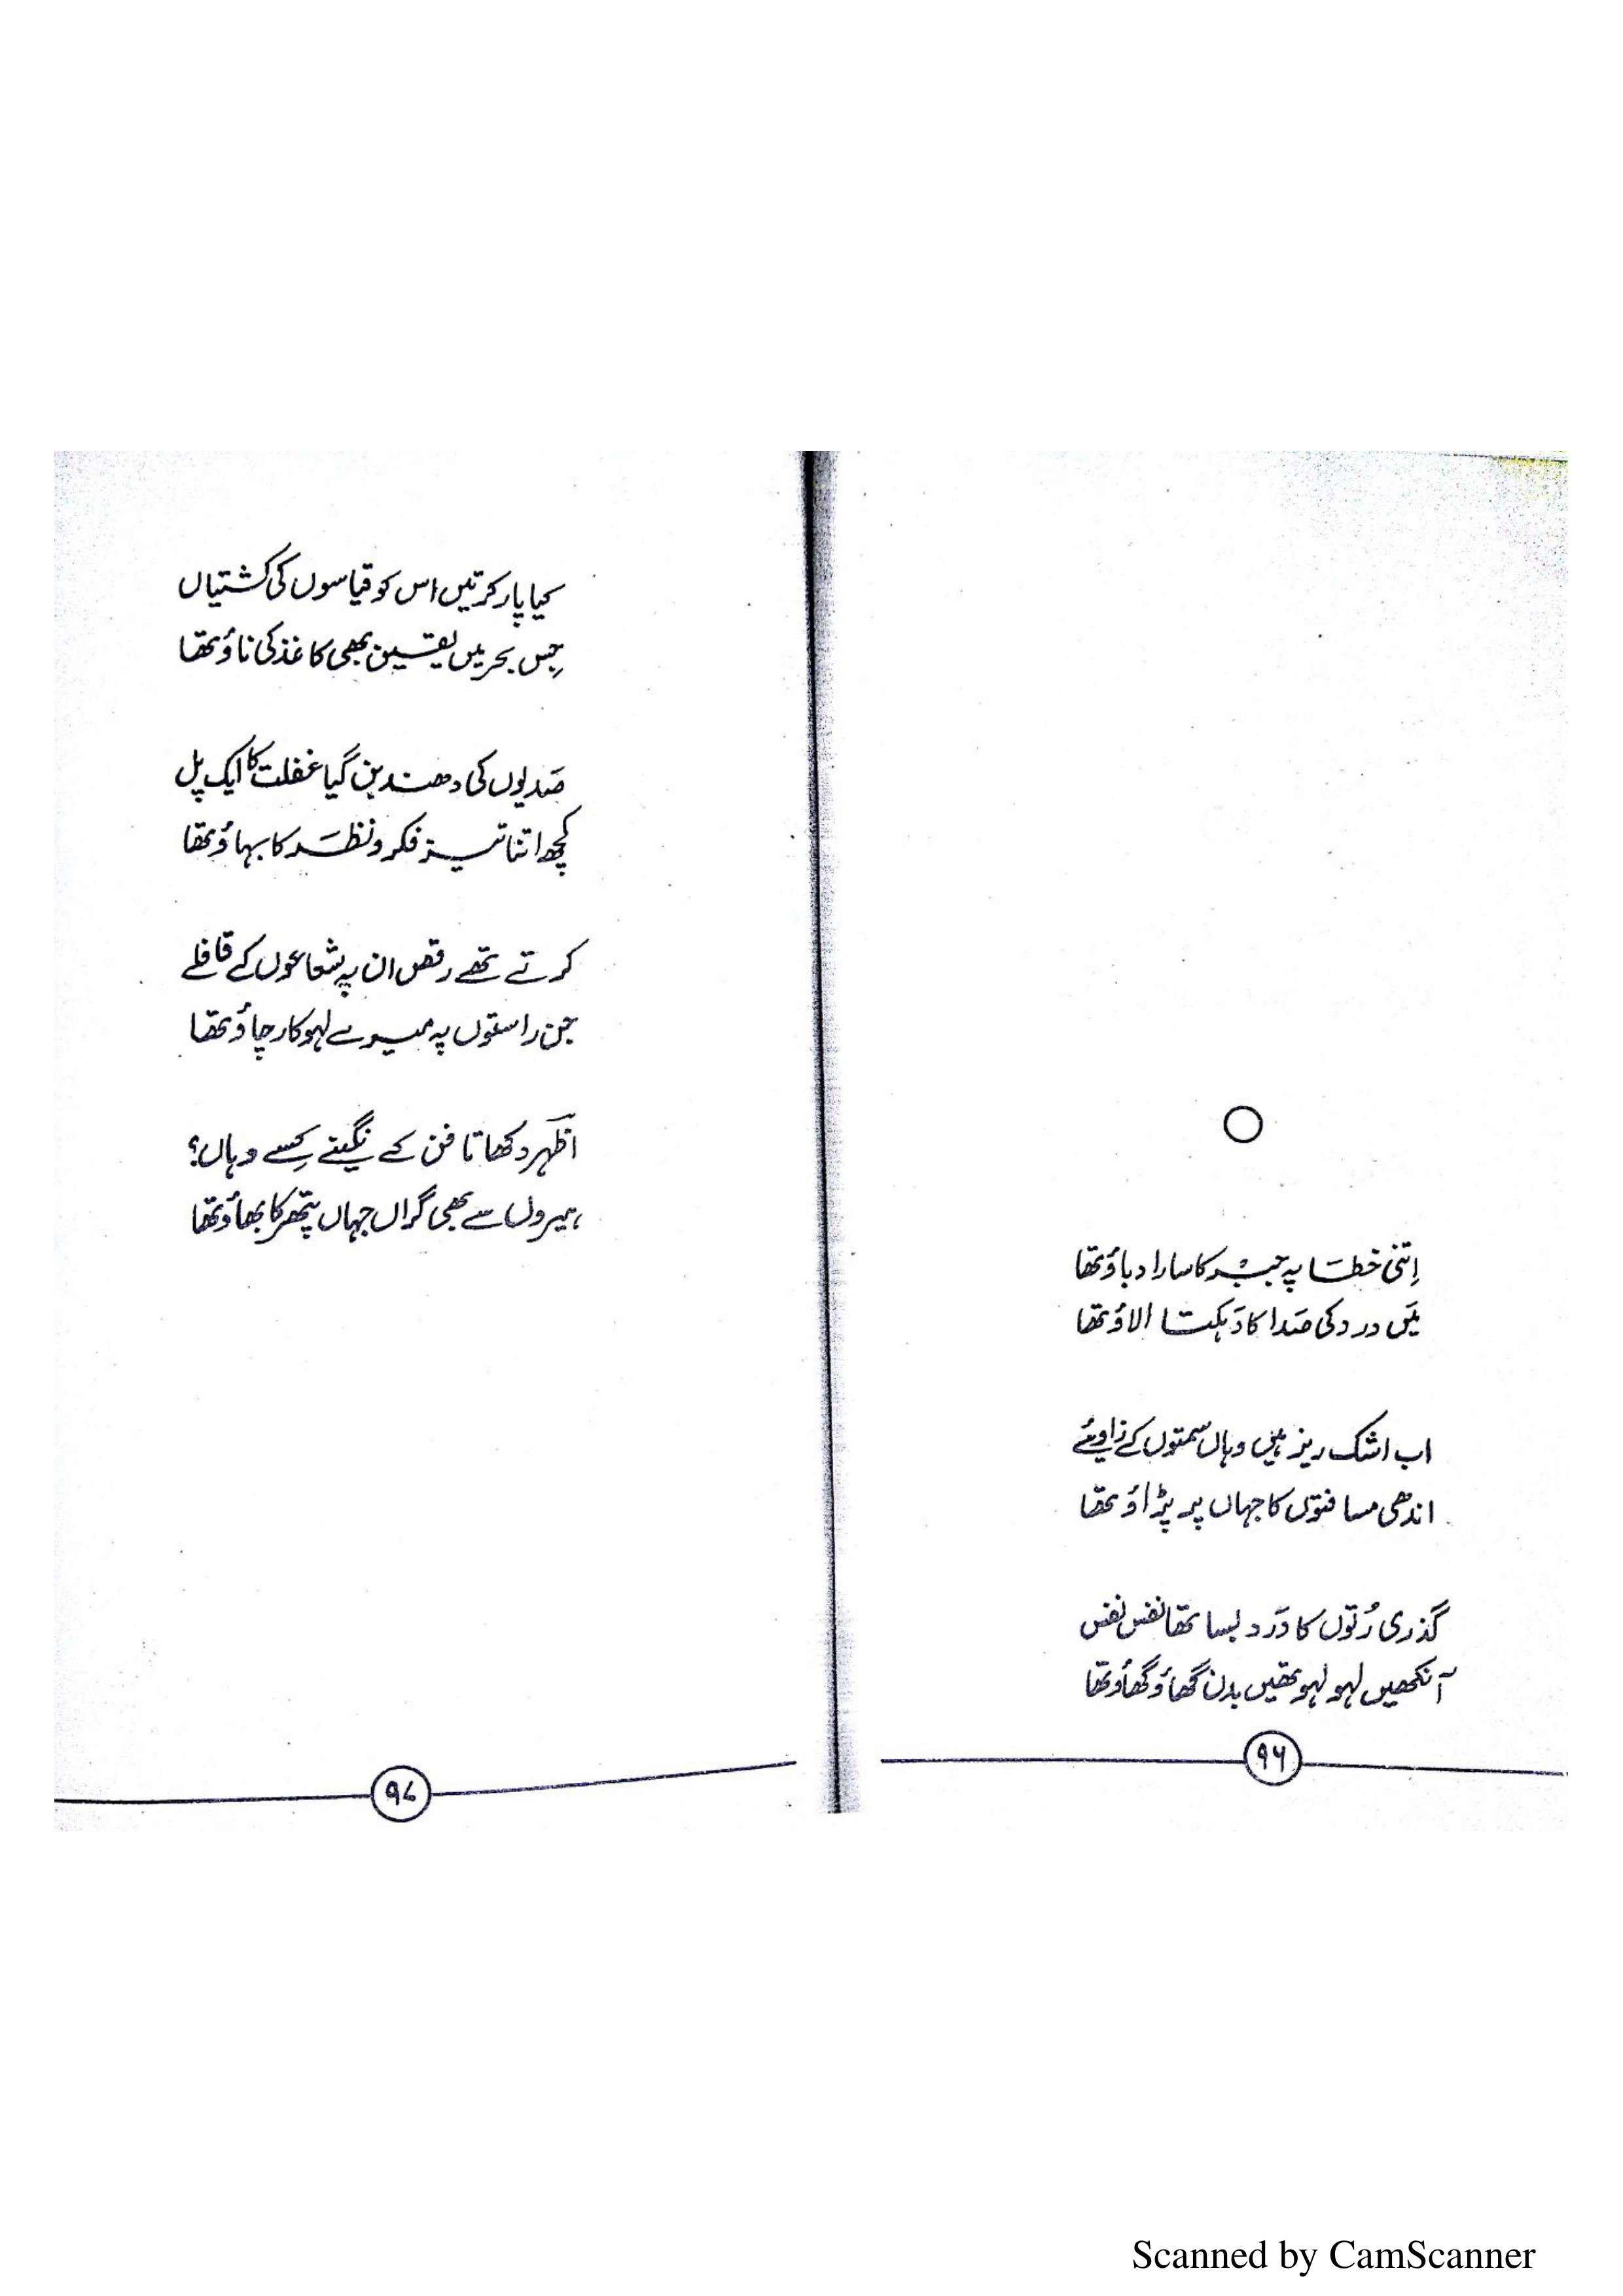 اِتنی خطا پہ جبر کا سارا دباؤ تھا
مَیں درد کی صَدا کا دَہکتا الاؤ تھا
اب اشک ریز ہیں وہاں سمتوں کے زاویئے
اندھی مسافتوں کا جہاں پر پڑاؤ تھا
گذری رُتوں کا دَرد بسا تھا نفس نفس
آنکھیں لہو لہو تھیں بدن گھاؤ گھاؤ تھا
۹۶
کیا پار کرتیں اس کو قیاسوں کی کشتیاں
جِس بحر میں یقین بھی کاغذ کی ناؤ تھا
صَدیوں کی دھند بن گیا غفلت کا ایک پل
کچھ اتنا تیز فکر و نظَر کا بہاؤ تھا
کرتے تھے رقص ان پہ شعاعوں کے قافلے
جن راستوں پہ میرے لہو کا رچاؤ تھا
اظہر دکھاتا فن کے نگینے کِسے وہاں؟
ہیروں سے بھی گراں جہاں پتھر کا بھاؤ تھا
۹۷
Scanned by CamScanner